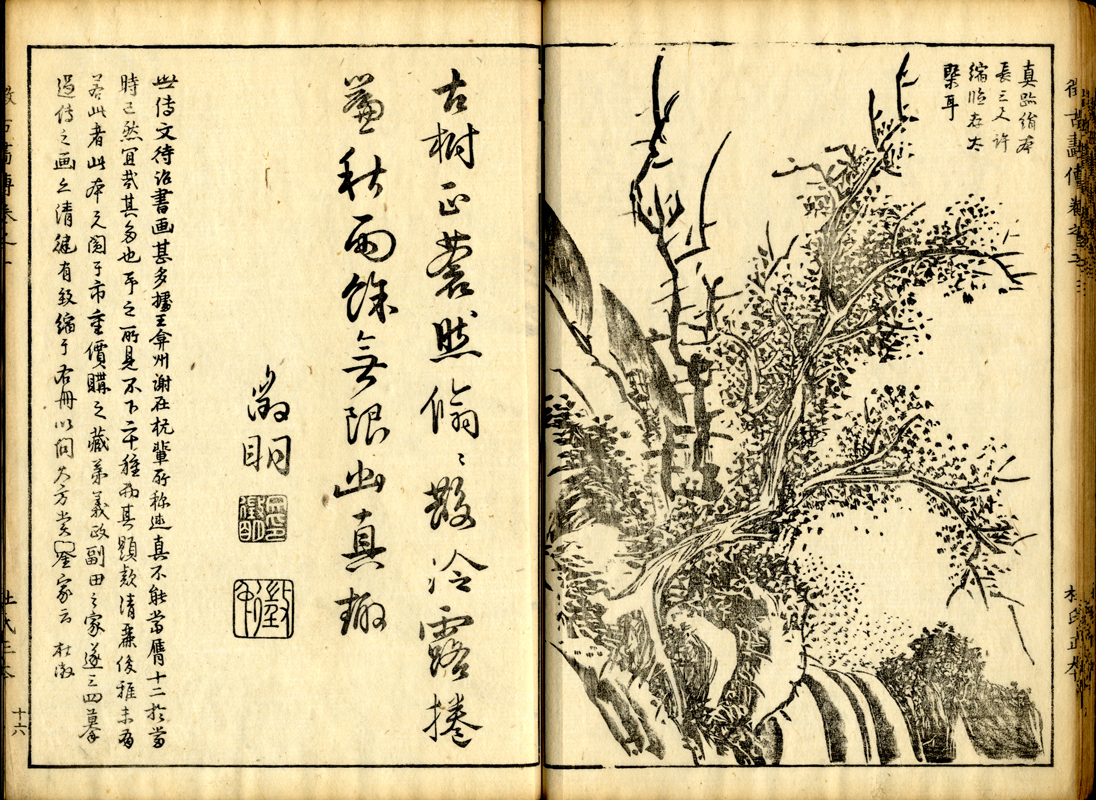 真跡絹本
長三尺許
縮臨存大
槩耳
古樹正蒼然翛〻散冷露捲
簾秋雨餘無限幽真趣
徵明
世傳文待詔書画甚多播王弇州謝在杭輩所称述真不能當膺十二於當
時已然宜哉其多也予之所見不下二十種而其題款清麗俊雅未有
若此者此本見図于市重價購之藏弟義政副田之家遂三四摹
過待之画之清健有致縮于右冊以問大方賞鑒家云 杜澂
十六